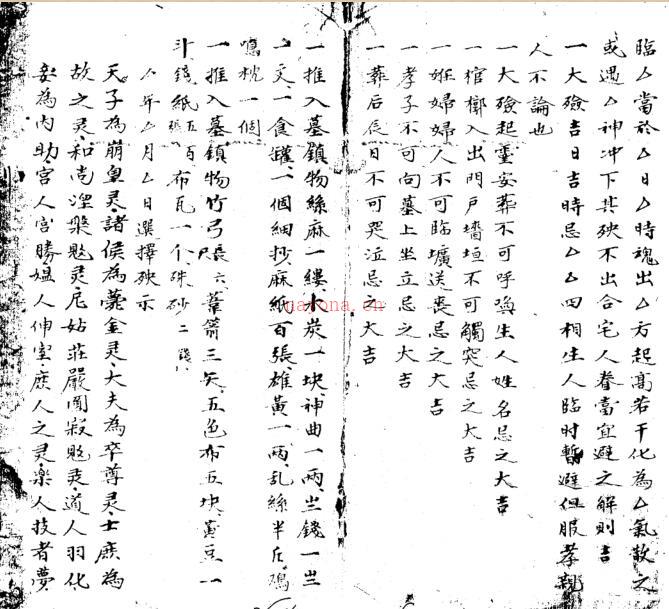 臨厶當於厶日厶時魂出厶方起髙若干化為厶氣散之
或遇厶神冲下其殃不出合宅人眷當宜避之解則吉
一大殮吉日吉時忌厶厶四相生人臨时暫避但服孝親
人不論也
一大殮起靈安葬不可呼喚生人姓名忌之大吉
一棺槨入出門戶墻垣不可觸突忌之大吉
一姙婦婦人不可臨壙送喪忌之大吉
一孝子不可向墓上坐立忌之大吉
一葬后辰日不可哭泣忌之大吉
一推入墓鎮物絲麻一縷木炭一块神曲一兩
一食罐一個細抄麻紙百張雄黃一兩乱絲半斤鴻
鳴枕一個
一推入墓鎮物竹弓長六尺葦箭三矢五色布五块黃豆一
斗錢紙五百張布瓦一个硃砂二錢
厶年厶月厶日選擇殃示
天子為崩皇灵諸侯為薨金灵大夫為卒尊灵士庶為
故之灵和尚涅槃灵尼姑莊嚴圓寂灵道人羽化
妾為内助宮人宮勝媪人伸室庶人之灵樂人技者夢
nayona.cn